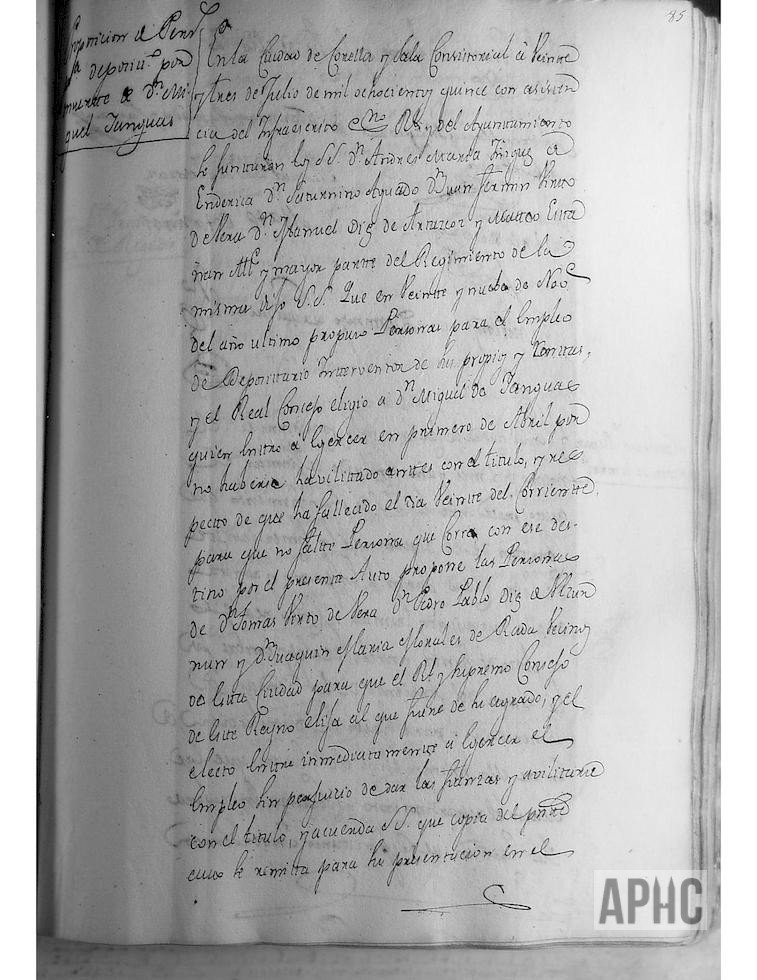 85
Proposicion de Pers.
a deposit.º por
muerte de Dn. Mi-
guel Tanguas
En la Ciudad de Corella y Sala Consistorial a Veinte
y tres de Julio de mil ochocientos y quince con asisten
cia del Infraescrito Esno. Rl. y del Ayuntamiento
se juntaron los SS. Dn. Andres Maria Iñiguez de
Enderica Dn. Saturnino Aguado Dn. Juan Fermin Virto
de Vera Dn. Manuel Diz de Antazcoz y Matteo Esta
ñan Alle. y mayor parte del Regimiento de la
misma dijo S.S. Que en Veinte y nuebe de Nove
del año ultimo propuso Personas para el Empleo
de Depositario Interventor de sus propios y Rentas,
y el Real Consejo eligio a Dn. Miguel de Tanguas
quien entro a Egercer en primero de Abril por
no haberse havilittado antes con el titulo, y res
pecto de que ha fallecido el dia Veinte del Corriente,
para que no falte Persona que Corra con ese des-
tino por el presente Auto propone las Personas
de Dn. Tomas Virto de Vera Dn. Pedro Pablo Diz de Ulzurr
nun y Dn. Juaquin Maria Morales de Rada Vecinos
de Esta Ciudad para que el Rl. y Supremo Consejo
de Este Reyno elija al que fuere de su agrado, y el
electo Entre inmediatamente a Egercer el
Empleo sin perjuicio de dar las fianzas y avilitarse
con el titulo, y acuerda SS. que copia del prnte
auto se remitta para su presentacion en el
APHC